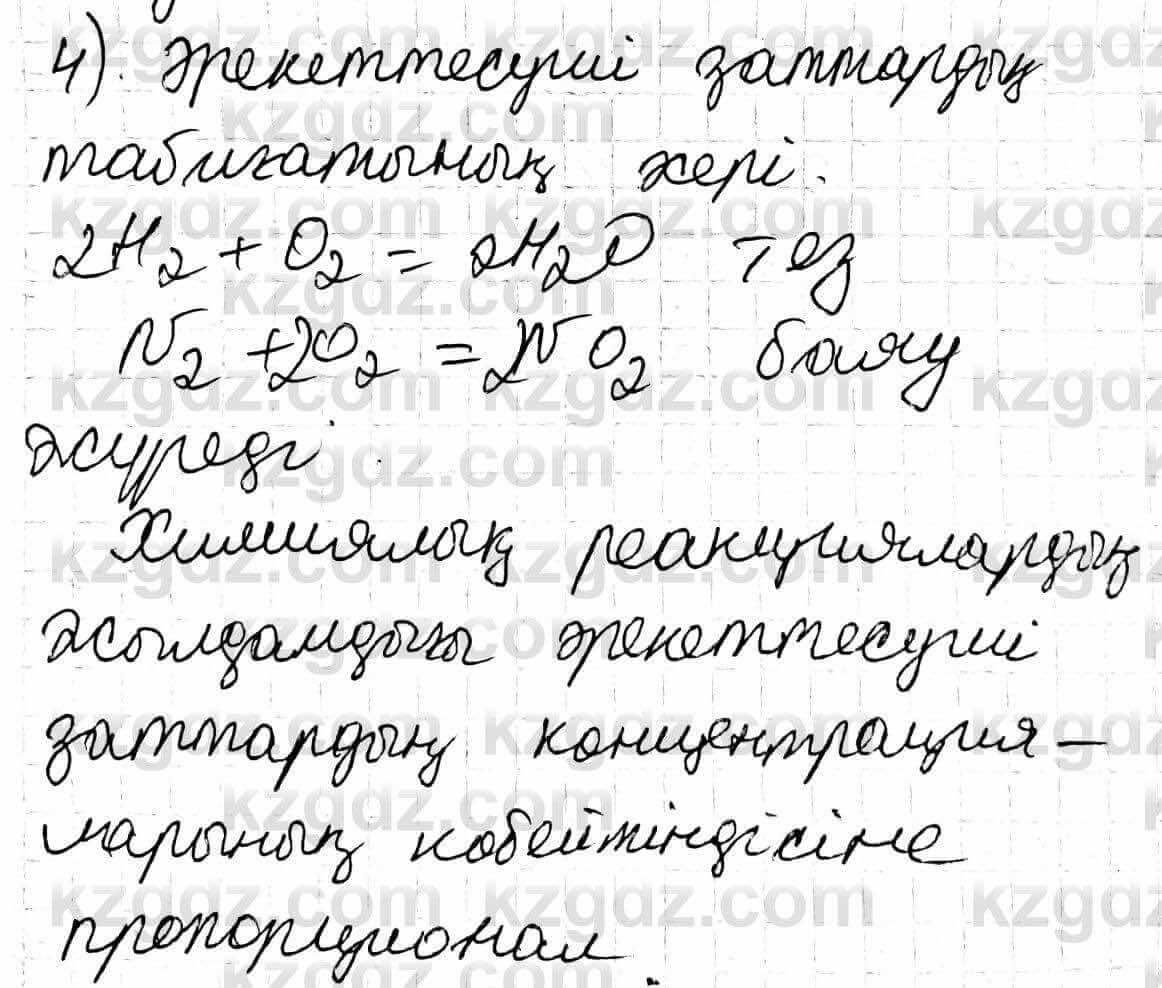 4). Әрекеттесуші заттардың
табиғатының жері.
2H₂ + O₂ = 2H₂O тез
N₂ + 2O₂ = 2NO₂ баяу
жүреді.
Химиялық реакциялардың
жылдамдығы әрекеттесуші
заттардың концентрация–
ларының көбейтіндісіне
пропорционал.
kzgdz.com